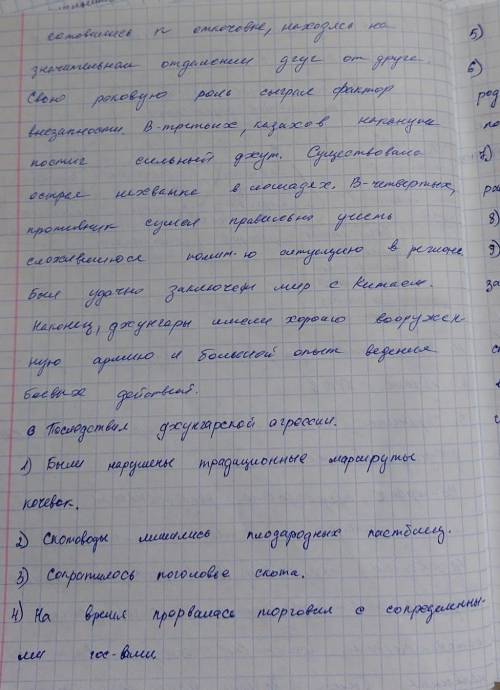 готовились к откочовке, находясь на
значительном отдалении друг от друга.
Свою роковую роль сыграл фактор
внезапности. В-третьих, казахов накануне
постиг сильный джут. Существовала
острая нехватка в лошадях. В-четвертых,
противник сумел правильно учесть
сложившиюся полит-ю ситуацию в регионе.
Был удачно заключен мир с Китаем.
Наконец, джунгары имели хорошо вооружен
ную армию и большой опыт ведения
боевых действий.
6 Последствия джунгарской агрессии.
1) Были нарушены традиционные маршруты
кочевок.
2) Скотоводы лишились плодародных пастбищ.
3) Сократилось поголовье скота.
4) На время прорвалась торговля с сопределенны-
ми гос-вами
5)
6)
род
по
7)
ра
8)
9)
за